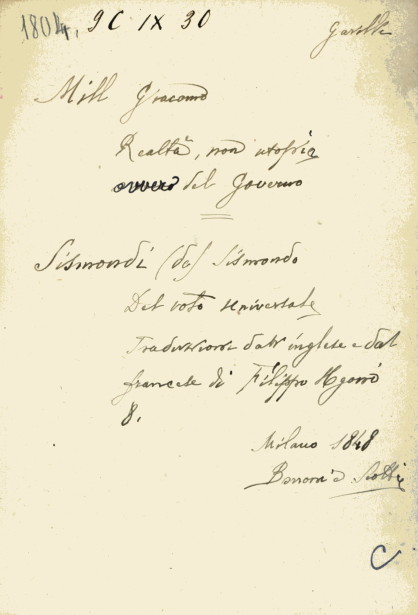 1804, 9C IX 30
Mill Giacomo
Realtà, non utopia
ovvero del Governo
Sismondi (de) Sismondo
Del voto universale
Traduzione dall'inglese e dal
francese di Filippo Ugoni
8.
Milano 1848
Bonomi e Scotti
C